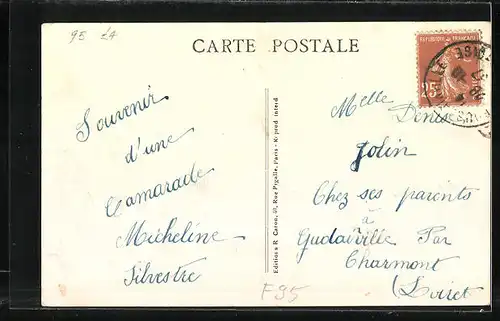 95 £4
CARTE POSTALE
Souvenir
d'une
Camarade
Micheline
Silvestre
Editions R. Caron, Rue Pigalle, Paris - Reprod. interd.
25
Melle Denise
Jolin
Chez ses parents
à
Gudainville Par
Charmont
(Loiret
F95